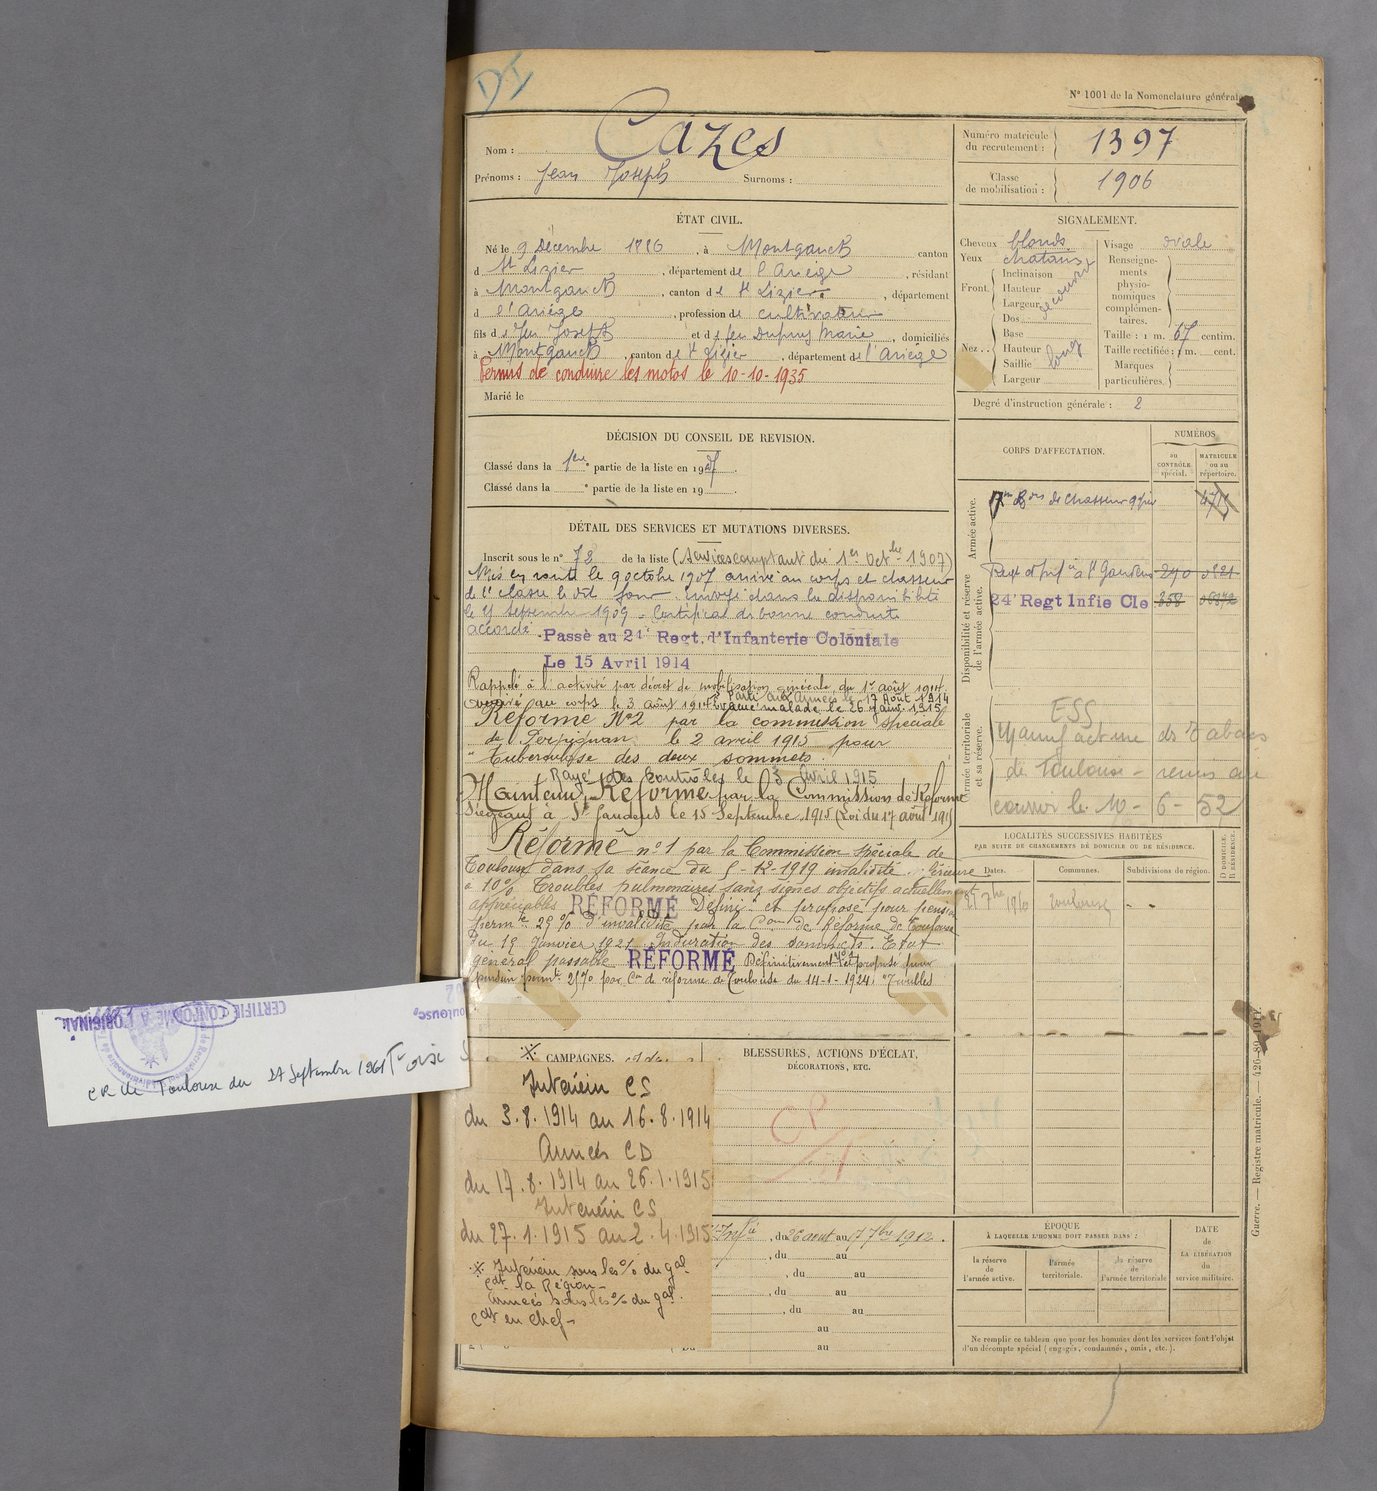 DI
N° 1001 de la Nomenclature générale
Nom : Cazes
Prénoms : Jean Joseph Surnoms :
Numéro matricule du recrutement : 1397
Classe de mobilisation : 1906
ÉTAT CIVIL.
Né le 9 Décembre 1886, à Montgauch canton
d St Lizier, département de l'Ariège, résidant
à Montgauch, canton de St Lizier, département
d l'Ariège, profession de cultivateur
fils de feu Joseph et de feu Dupuy Marie, domiciliés
à Montgauch, canton de St Lizier, département de l'Ariège
Permis de conduire les motos le 10-10-1935
Marié le
SIGNALEMENT.
Cheveux blonds
Yeux chatains
Front. Inclinaison
Hauteur
Largeur
Nez.. Dos
Base
Hauteur
Saillie long
Largeur
Visage ovale
Renseignements physionomiques complémentaires.
Taille : 1 m. 67 centim.
Taille rectifiée : 1 m. cent.
Marques particulières.
Degré d'instruction générale : 2
DÉCISION DU CONSEIL DE REVISION.
Classé dans la 1ère partie de la liste en 1907.
Classé dans la ° partie de la liste en 19 .
DÉTAIL DES SERVICES ET MUTATIONS DIVERSES.
Inscrit sous le n° 72 de la liste (services comptant du 1er Octbre 1907)
Mis en route le 9 octobre 1907 arrivé au corps et chasseur
de 2e classe le dit jour. Envoyé dans la disponibilité
le 25 septembre 1909 - Certificat de bonne conduite
accordé. Passé au 24e Regt. d'Infanterie Coloniale
Le 15 Avril 1914
Rappelé à l'activité par décret de mobilisation générale du 1er août 1914
Parti aux armées le 17 Août 1914
arrivé au corps le 3 août 1914 Evacué malade le 26 janv. 1915
Réformé N°2 par la commission spéciale
de Perpignan le 2 avril 1915 pour
"Tuberculose des deux sommets.
Rayé des contrôles le 3 Avril 1915
Maintenu Réformé par la Commission de Réforme
Siégeant à St Gaudens le 15 Septembre 1915 (Loi du 17 août 1915)
Réformé n°1 par la Commission spéciale de
Toulouse dans sa séance du 5-12-1919 invalidité inférieure
à 10% Troubles pulmonaires sans signes objectifs actuellement
appréciables RÉFORMÉ Définit. et proposé pour pension
permte 25% d'invalidité par la Con de Réforme de Toulouse
du 19 Janvier 1921 Induration des sommets. Etat
général passable RÉFORMÉ Définitivement N°1 et proposé pour
pension permte 25% par Con de réforme de Toulouse du 14-1-1924. "Troubles
CORPS D'AFFECTATION.
NUMÉROS
au CONTRÔLE spécial.
MATRICULE ou au répertoire.
Armée active.
7me Bon de Chasseur à pied
Disponibilité et réserve de l'armée active.
Regt d'Infie à St Gaudens 290
24e Regt Infie Cle 358
Armée territoriale et sa réserve.
ESS
Manufacture de Tabacs
de Toulouse - remis au
courrier le 10-6-52
LOCALITÉS SUCCESSIVES HABITÉES
PAR SUITE DE CHANGEMENTS DE DOMICILE OU DE RÉSIDENCE.
Dates. Communes. Subdivisions de région. D DOMICILE. R RÉSIDENCE.
21 7bre 1910 Toulouse - -
CERTIFIÉ CONFORME A L'ORIGINAL
Toulouse,
CR de Toulouse du 27 Septembre 1961
CAMPAGNES.
Intérieur CS
du 3.8.1914 au 16.8.1914
Armées CD
du 17.8.1914 au 26.1.1915
Intérieur CS
du 27.1.1915 au 2.4.1915
Intérieur sous les % du gal
cdt la Région -
armées sous les % du gal.
cdt en chef -
BLESSURES, ACTIONS D'ÉCLAT,
DÉCORATIONS, ETC.
Infie, du 26 aout au 17 7bre 1912.
, du au
, du au
, du au
, du au
au
Du au
ÉPOQUE
À LAQUELLE L'HOMME DOIT PASSER DANS :
la réserve de l'armée active.
l'armée territoriale.
la réserve de l'armée territoriale
DATE de LA LIBÉRATION du service militaire.
Ne remplir ce tableau que pour les hommes dont les services font l'objet
d'un décompte spécial (engagés, condamnés, omis, etc.).
Guerre. — Registre matricule. — 426-89-1911.